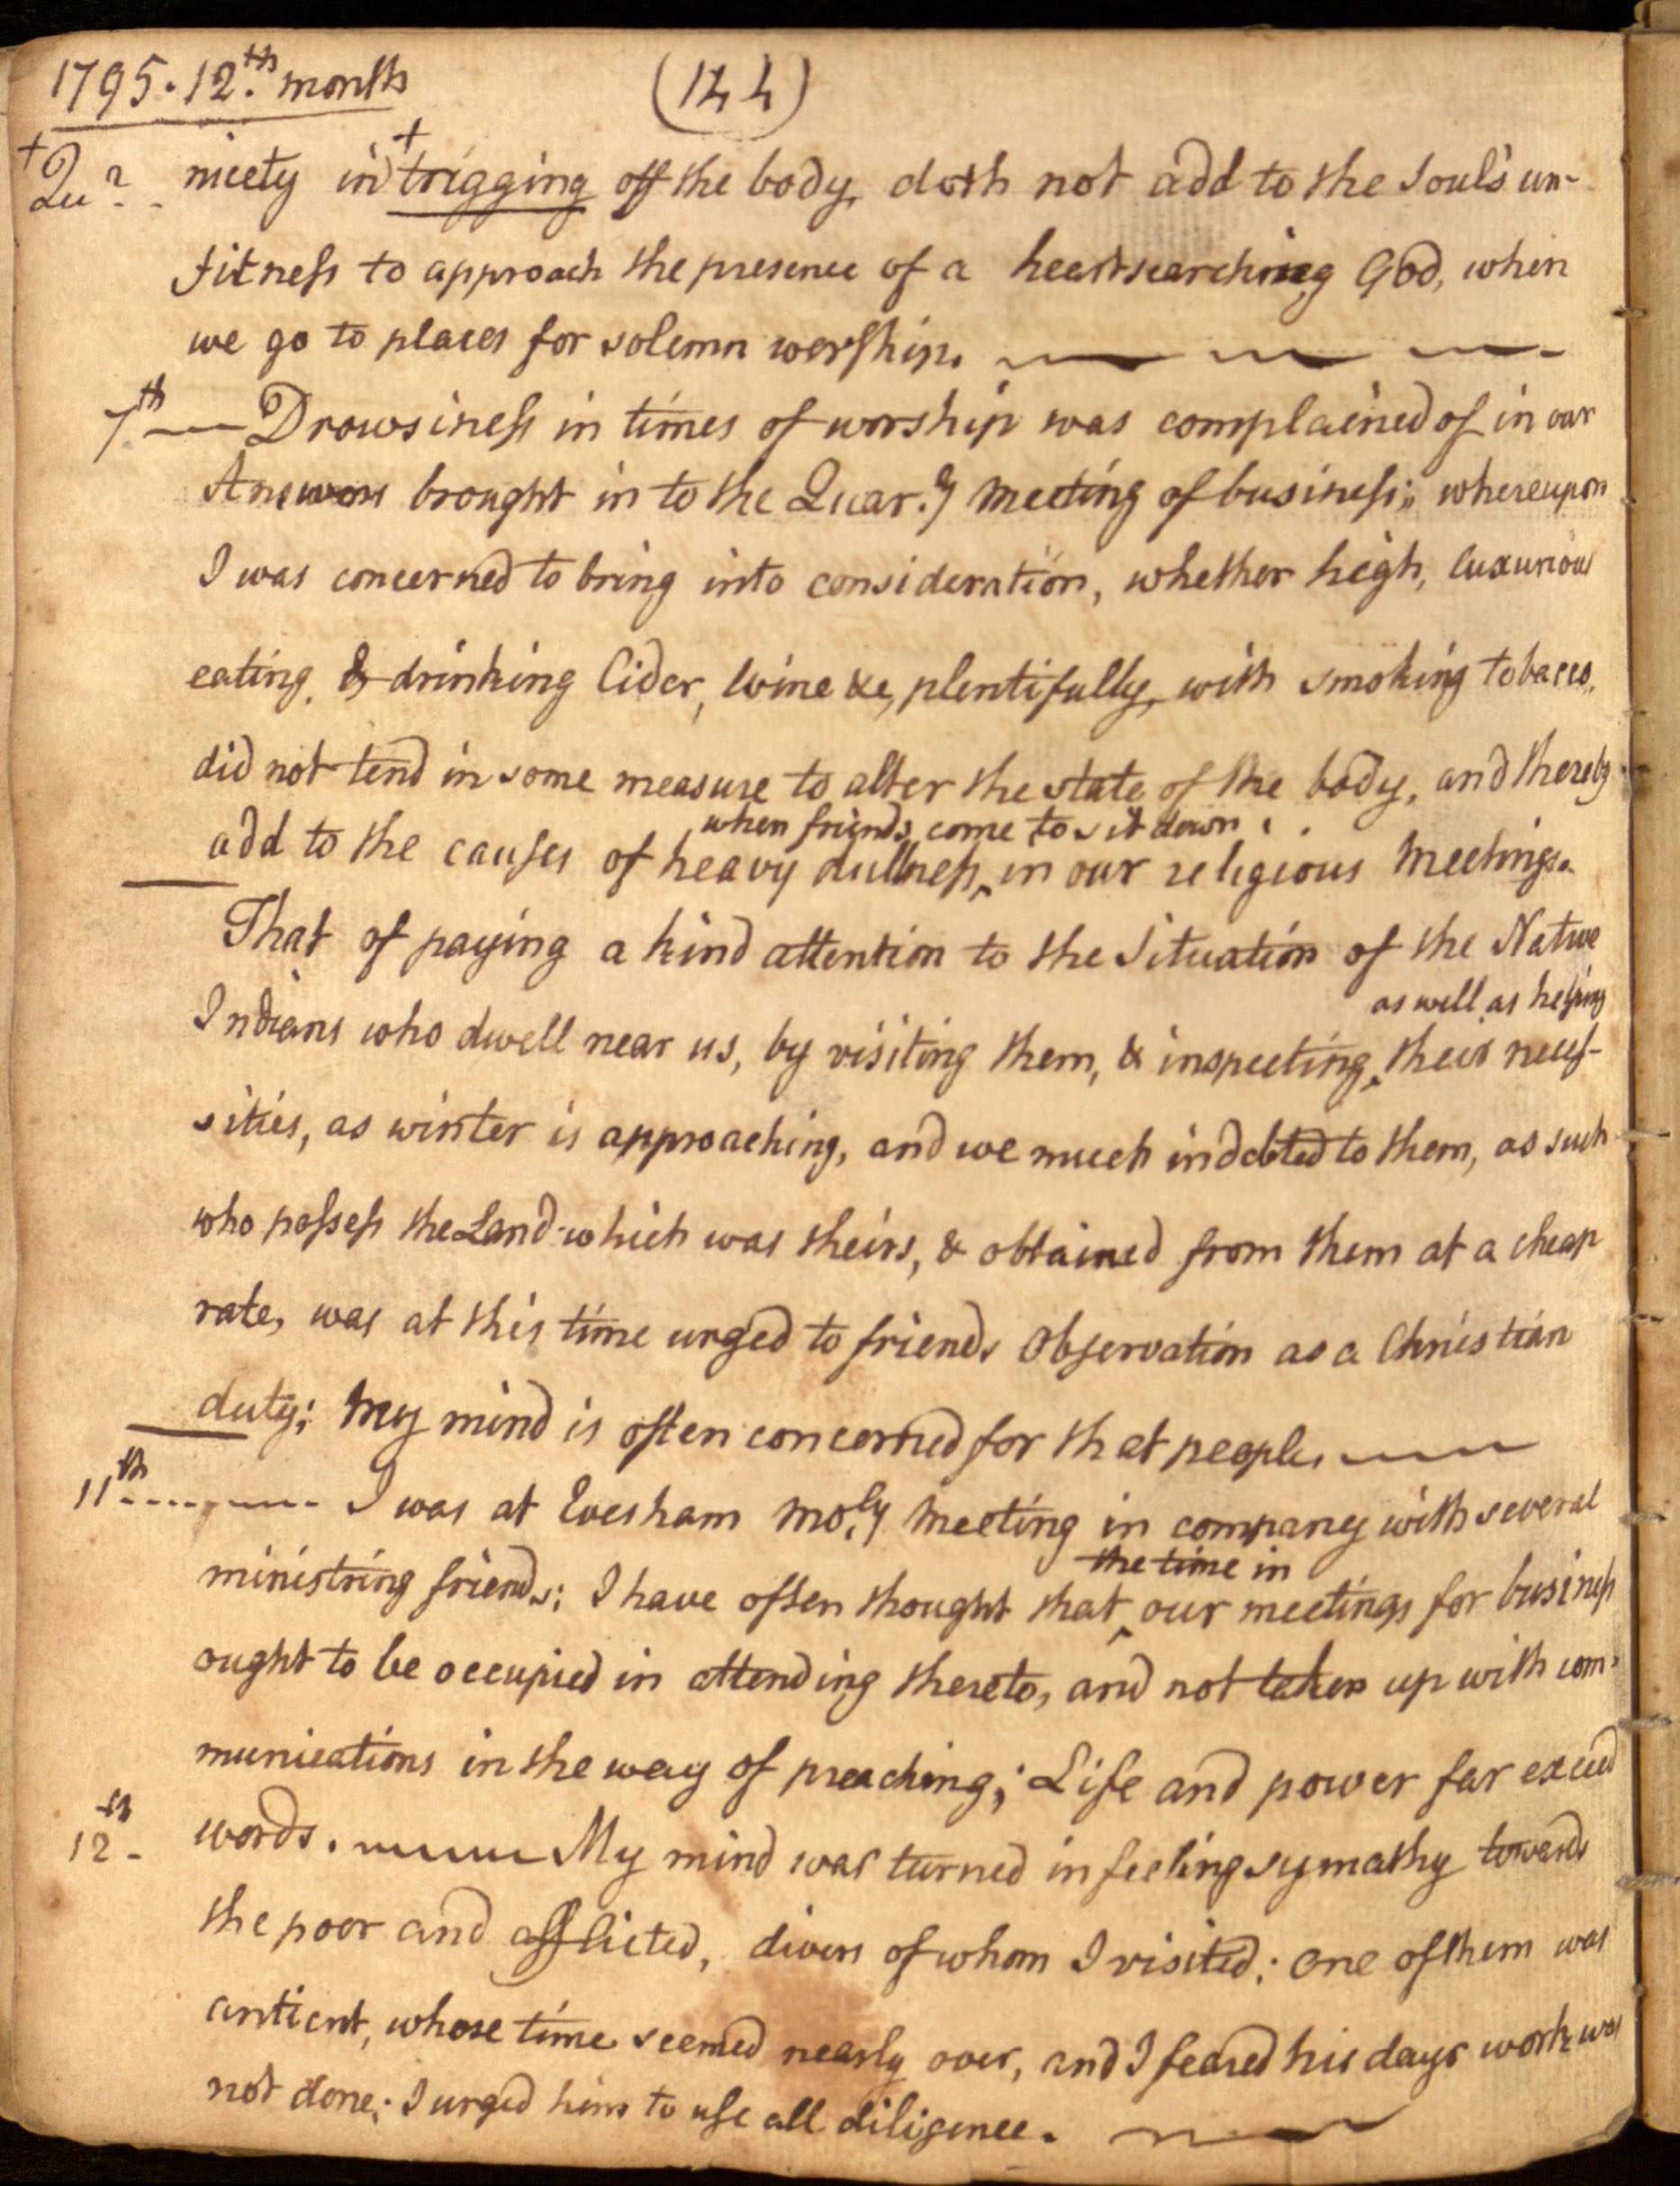 1795. 12.th month (144)
+ Qu? nicety in + trigging off the body, doth not add to the Souls un-
fitness to approach the presence of a heartsearching God, when
we go to places for solemn worship.
7th Drowsiness in times of worship was complained of in our
Answers brought in to the Quar.ly meeting of business; whereupon
I was concerned to bring into consideration, whether high, luxurious
eating, & drinking Cider, Wine &c, plentifully, with smoking tobacco,
did not tend in some measure to alter the state of the body, and thereby
when friends come to sit down
add to the causes of heavy dullness ^ in our religious Meetings.
That of paying a kind attention to the Situation of the Native
as well as helping
Indians who dwell near us, by visiting them, & inspecting ^ their neces-
sities, as winter is approaching, and we much indebted to them, as such
who possess the Land which was theirs, & obtained from them at a cheap
rate, was at this time urged to friends Observation as a Christian
duty; My mind is often concerned for that people.
11th I was at Evesham Mo.ly Meeting in company with several
the time in
ministring friends; I have often thought that ^ our meetings for business
ought to be occupied in attending thereto, and not taken up with com-
munications in the way of preaching; Life and power far exceed
12th words. My mind was turned in feeling symathy towards
the poor and afflicted, divers of whom I visited; one of them was
antient, whose time seemed nearly over, and I feared his days work was
not done; I urged him to use all diligence.